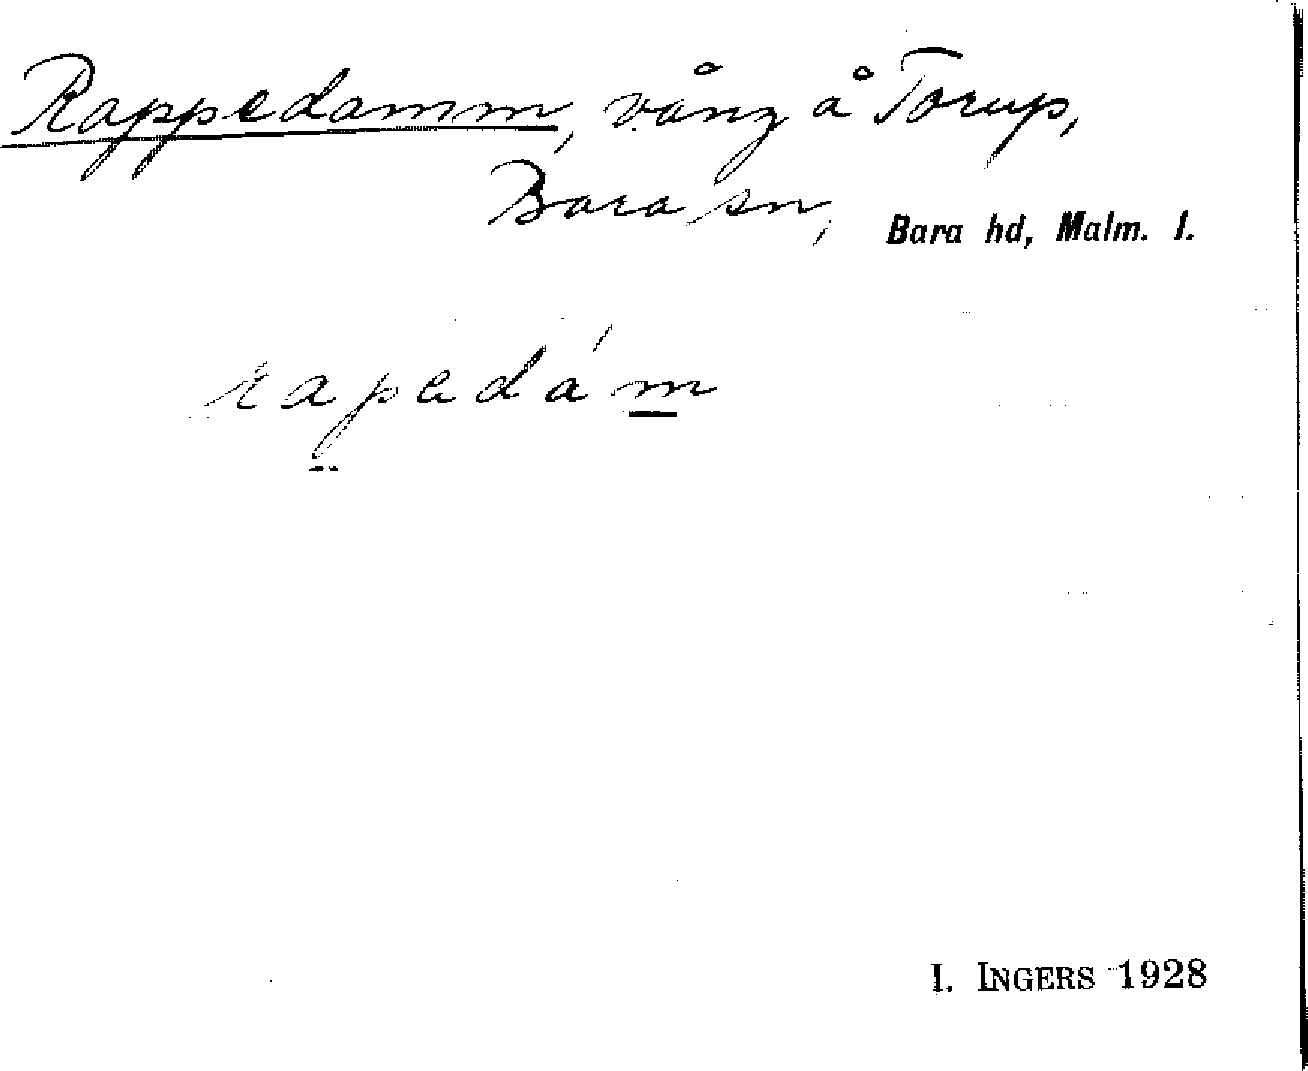 Rappedamm, vång å Torup,
Bara sn, Bara hd, Malm. l.
rapedám
I. INGERS 1928